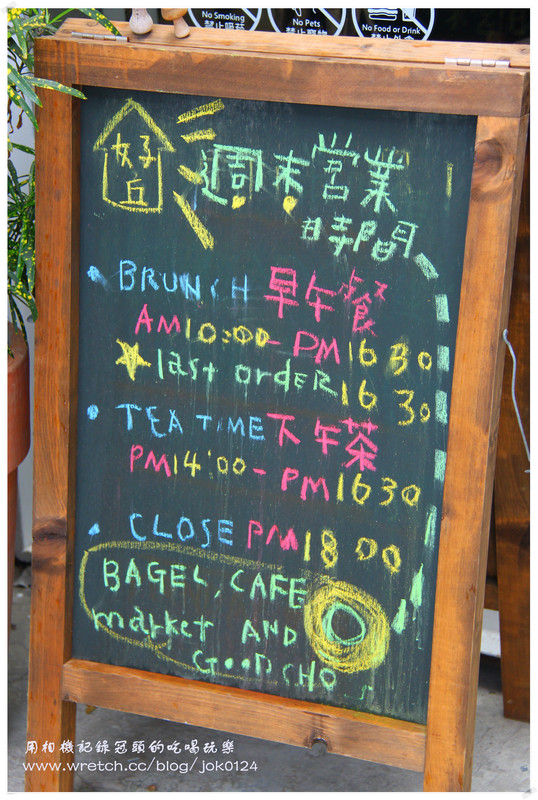 No Smoking
No Pets
No Food or Drink
好丘
週末營業
時間
BRUNCH 早午餐
AM10:00-PM16 30
last order 16 30
TEA TIME 下午茶
PM14:00-PM1630
CLOSE PM1800
BAGEL, CAFE
market AND
GOOD CHO
用相機記錄冠頭的吃喝玩樂
www.wretch.cc/blog/jok0124